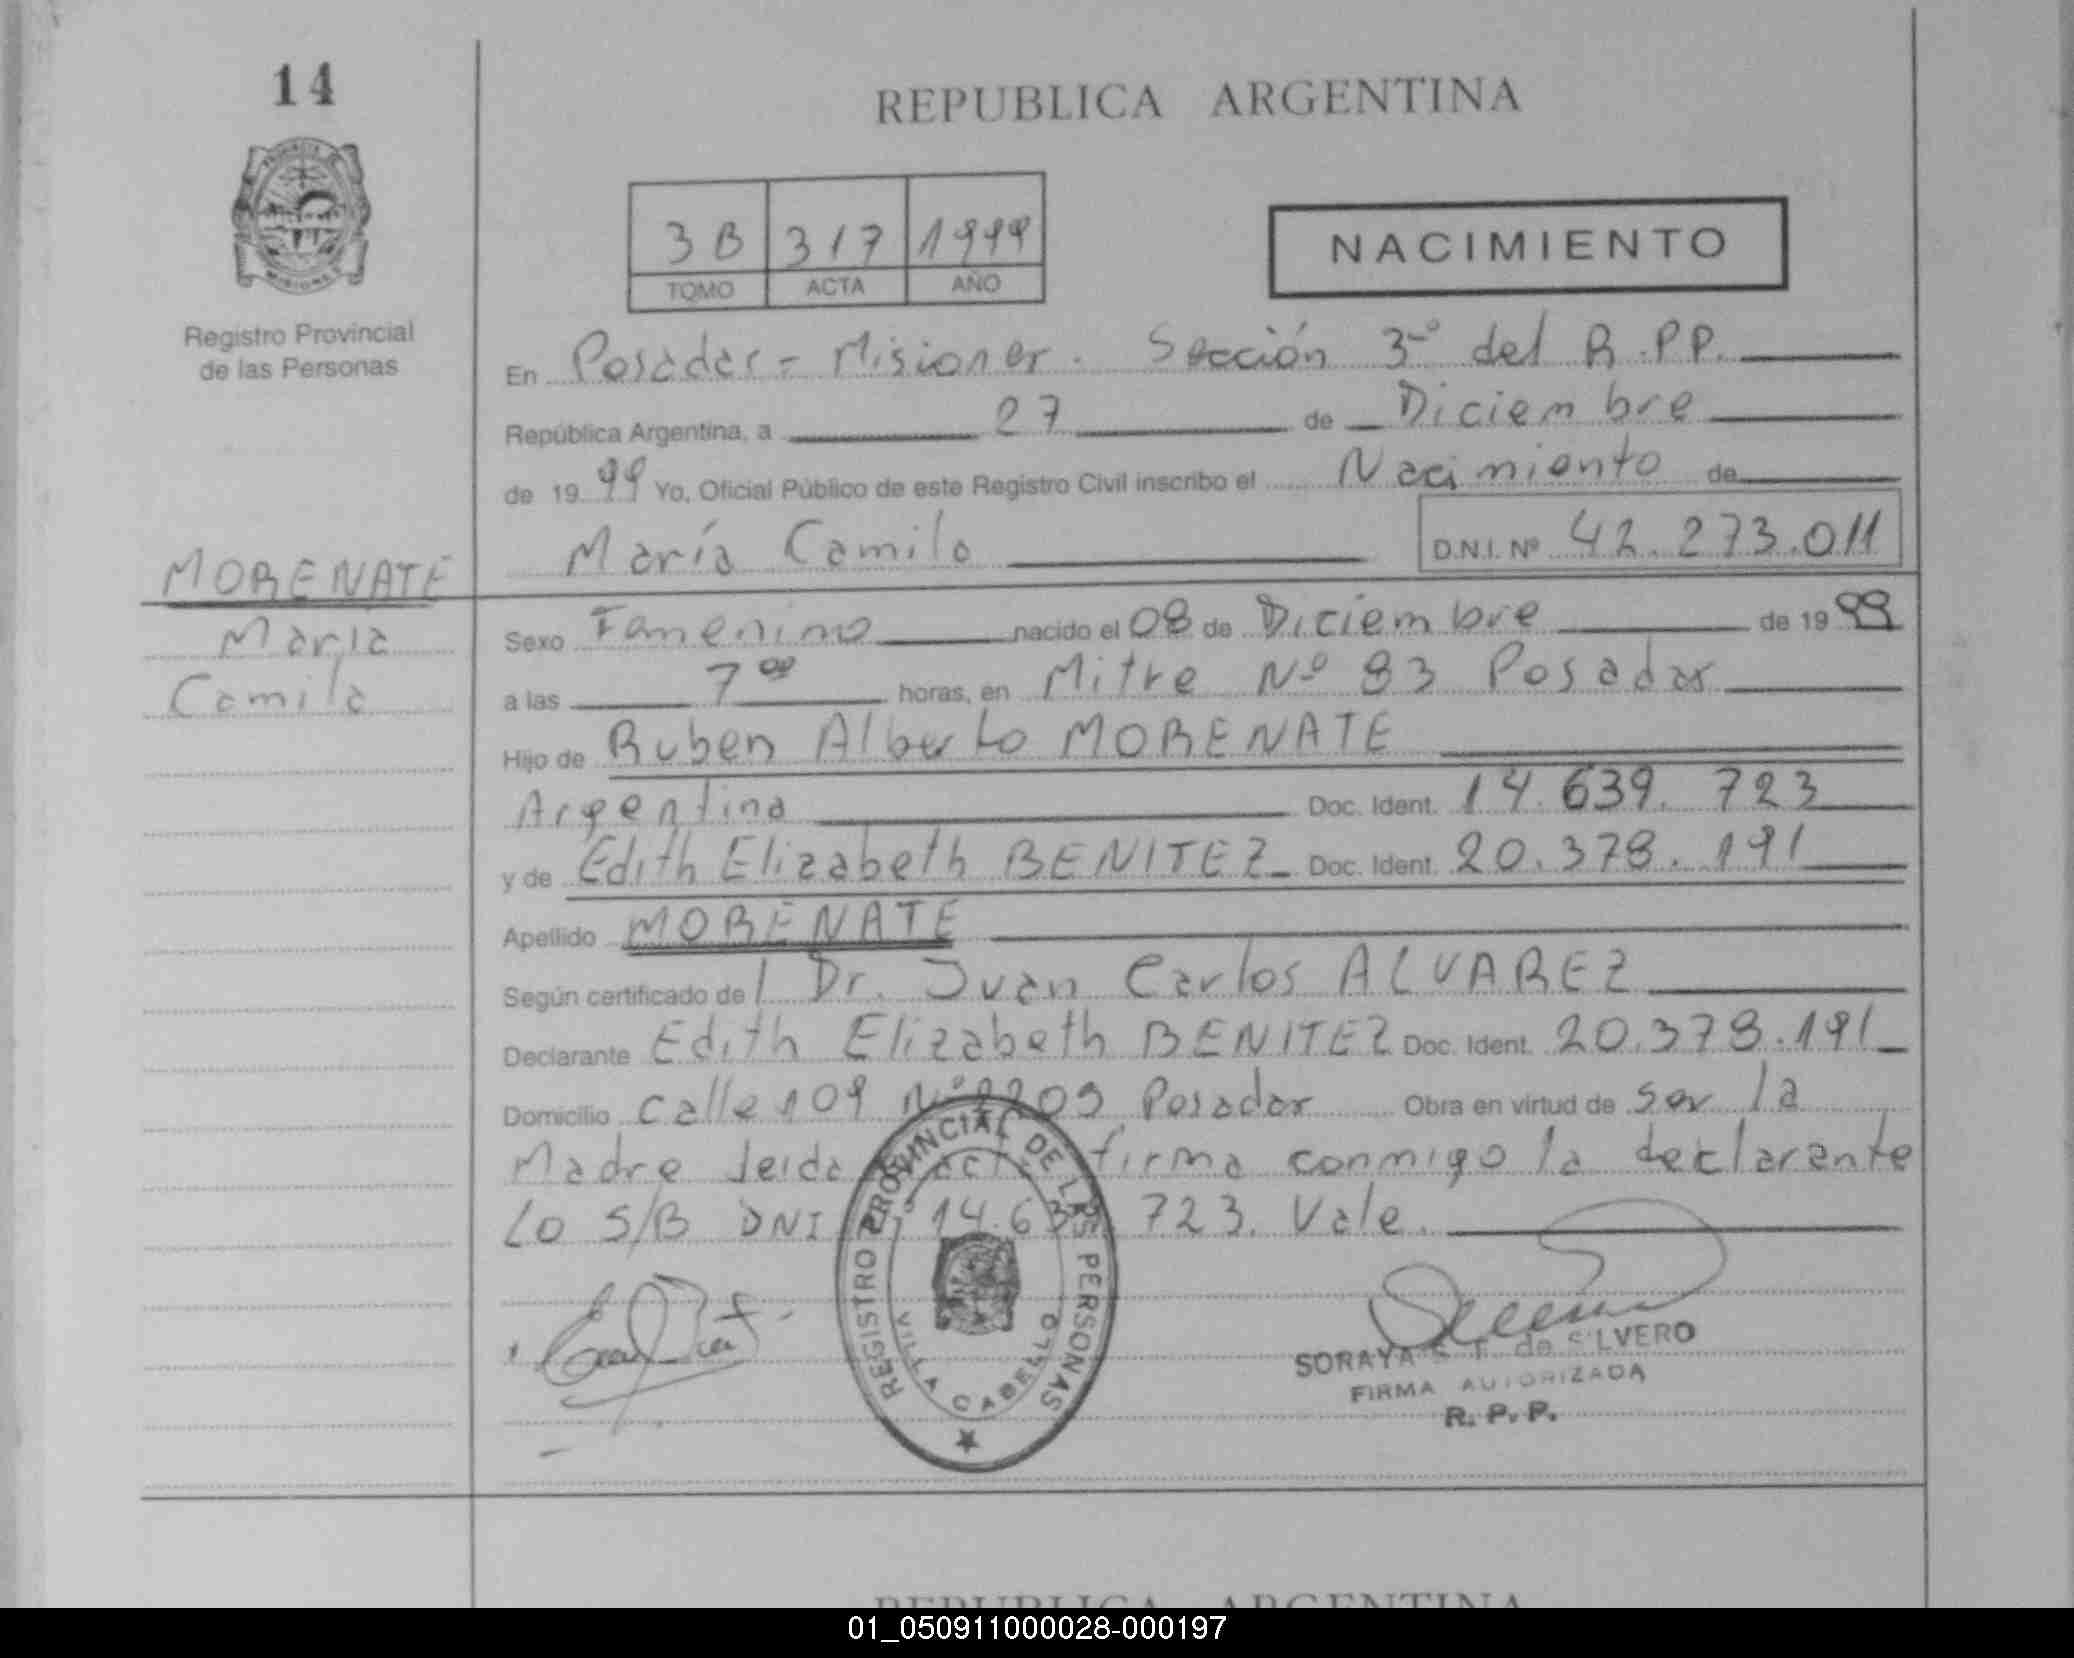 14
REPUBLICA ARGENTINA
3B 317 1999
TOMO ACTA AÑO
NACIMIENTO
Registro Provincial
de las Personas
En Posadas - Misiones. Sección 3º del R.P.P.
República Argentina, a 27 de Diciembre
de 19 99 Yo, Oficial Público de este Registro Civil inscribo el Nacimiento de
María Camila D.N.I. Nº 42.273.011
MORENATE
María
Camila
Sexo Femenino nacido el 08 de Diciembre de 19 99
a las 7 00 horas, en Mitre Nº 83 Posadas
Hijo de Ruben Alberto MORENATE
Argentina Doc. Ident. 14.639.723
y de Edith Elizabeth BENITEZ Doc. Ident. 20.378.191
Apellido MORENATE
Según certificado del Dr. Juan Carlos ALVAREZ
Declarante Edith Elizabeth BENITEZ Doc. Ident. 20.378.191
Domicilio calle 109 Posadas Obra en virtud de ser la
Madre leida firma conmigo la declarante
Lo S/B DNI 14.63 723. Vale.
REGISTRO PROVINCIAL DE LAS PERSONAS
VILLA CABELLO
SORAYA de SILVERO
FIRMA AUTORIZADA
R. P. P.
REPUBLICA ARGENTINA
01_050911000028-000197